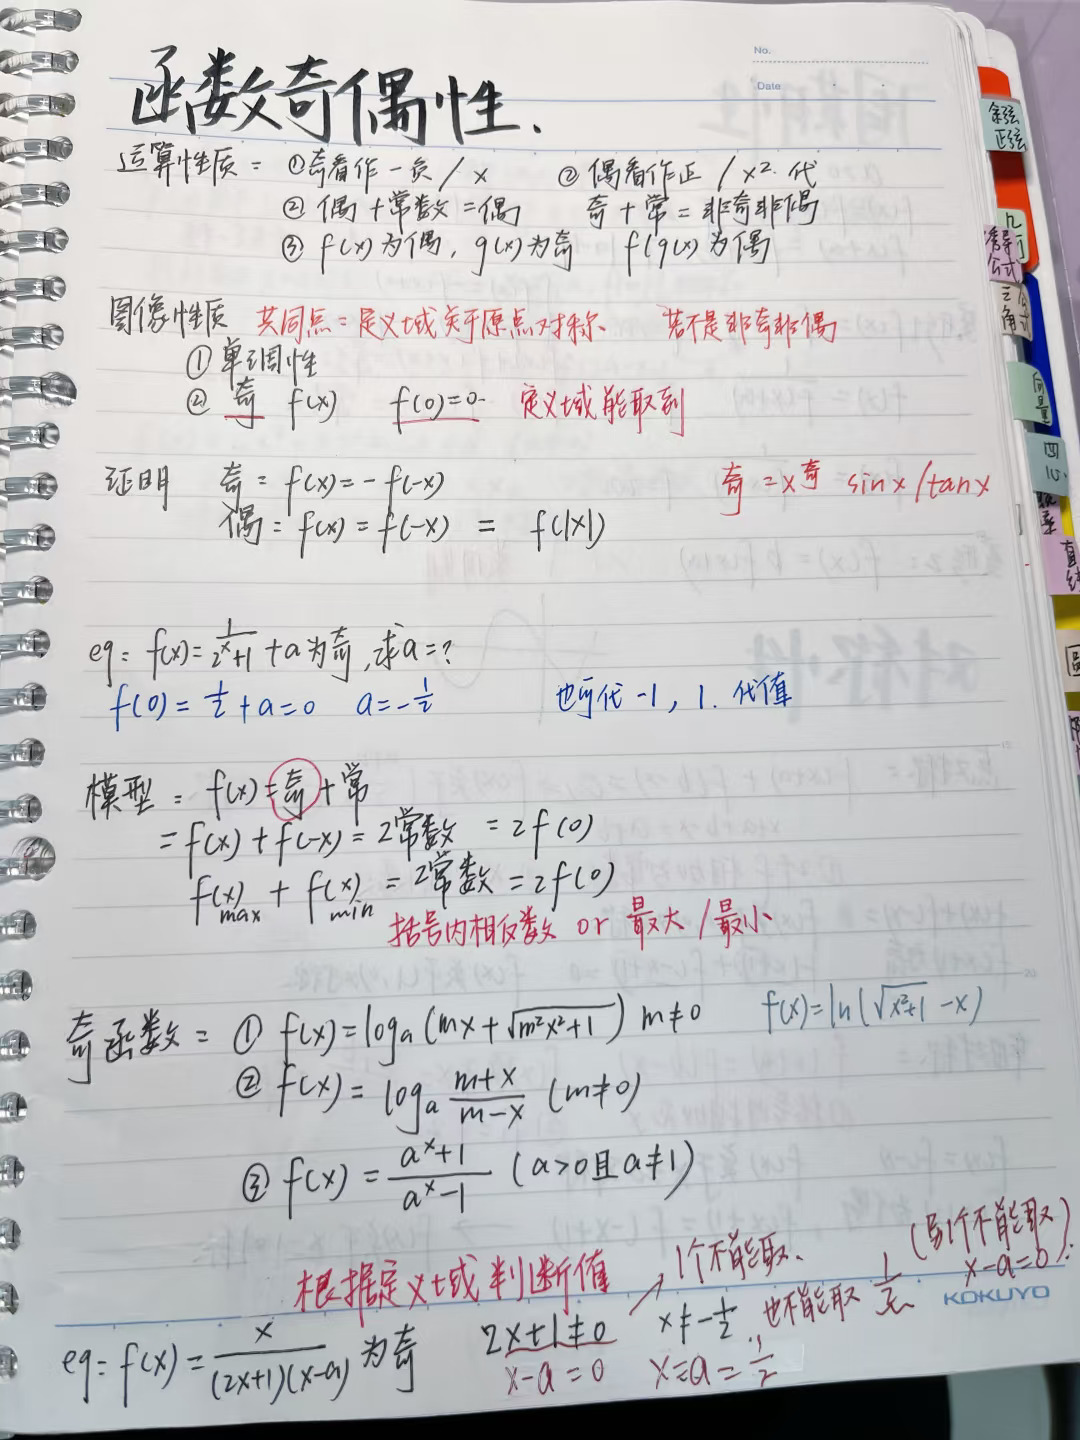 No.
Date
函数奇偶性.
运算性质: ①奇看作一负/x ②偶看作正/x². 代
② 偶+常数=偶 奇+常=非奇非偶
③ f(x)为偶, g(x)为奇 f(g(x)为偶
图像性质 共同点:定义域关于原点对称. 若不是非奇非偶
① 单调性
② 奇 f(x) f(0)=0. 定义域能取到
证明 奇: f(x)=-f(-x) 奇=x奇 sinx/tanx
偶: f(x)=f(-x) = f(|x|)
eg: f(x)=1/(2^x+1)+a为奇,求a=?
f(0)=1/2+a=0 a=-1/2 也可代-1, 1. 代值
模型: f(x)=奇+常
=f(x)+f(-x)=2常数 =2f(0)
f(x)max + f(x)min =2常数=2f(0)
括号内相反数 or 最大/最小
奇函数: ① f(x)=logₐ(mx+√(m²x²+1)) m≠0 f(x)=ln(√(x²+1)-x)
② f(x)=logₐ (m+x)/(m-x) (m≠0)
③ f(x)=(a^x+1)/(a^x-1) (a>0且a≠1)
根据定义域判断值 1个不能取. (另1个不能取)
x-a=0
KOKUYO
eg: f(x)=x/((2x+1)(x-a))为奇 2x+1≠0 x≠-1/2, 也不能取 1/2
x-a=0 x=a=1/2
余弦
正弦
诱导
公式
三角
向量
四心